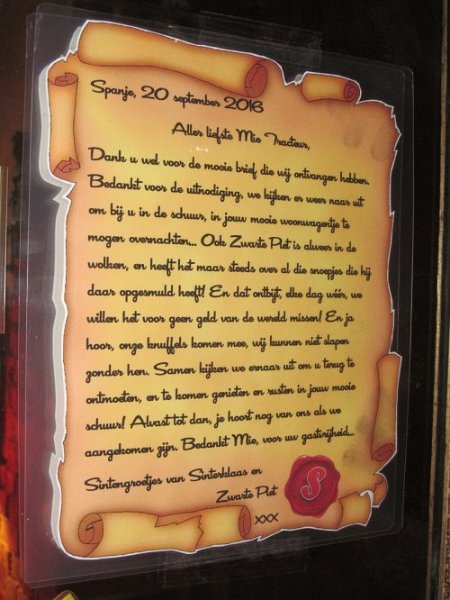 Spanje, 20 september 2016
Aller liefste Mie Tracteur,
Dank u wel voor de mooie brief die wij ontvangen hebben.
Bedankt voor de uitnodiging, we kijken er weer naar uit
om bij u in de schuur, in jouw mooie woonwagentje te
mogen overnachten... Ook Zwarte Piet is alweer in de
wolken, en heeft het maar steeds over al die snoepjes die hij
daar opgesmuld heeft! En dat ontbijt, elke dag wéér, we
willen het voor geen geld van de wereld missen! En ja
hoor, onze knuffels komen mee, wij kunnen niet slapen
zonder hen. Samen kijken we ernaar uit om u terug te
ontmoeten, en te komen genieten en rusten in jouw mooie
schuur! Alvast tot dan, je hoort nog van ons als we
aangekomen zijn. Bedankt Mie, voor uw gastvrijheid...
Sintengroetjes van Sinterklaas en
Zwarte Piet
xxx
S